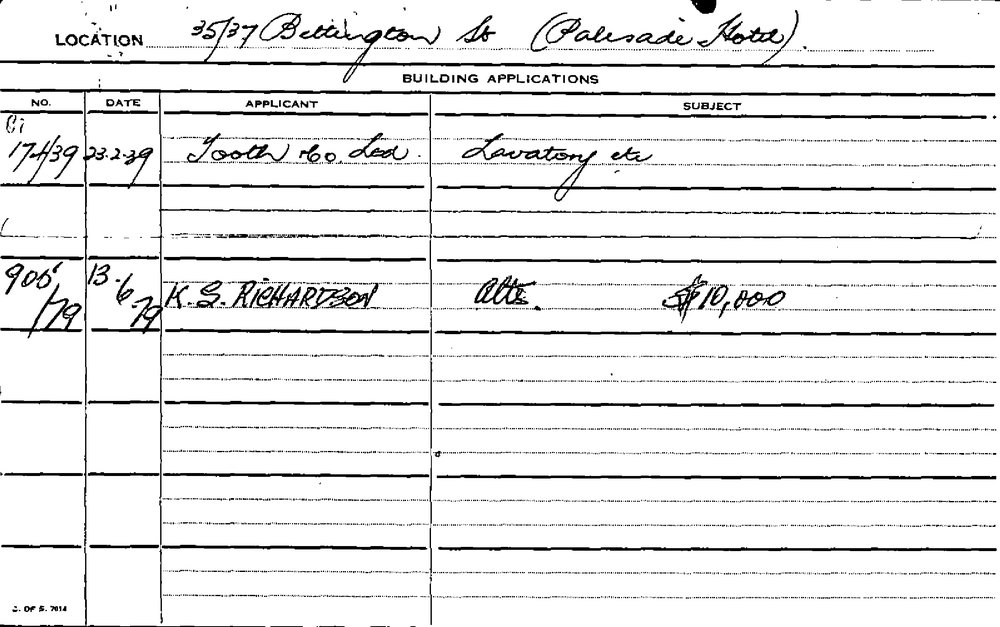 LOCATION 35/37 Bettington St (Palisade Hotel).
BUILDING APPLICATIONS
NO. DATE APPLICANT SUBJECT
174/39 23.2.39 Tooth & Co. Ltd. Lavatory etc
905/79 13.6.79 K. S. RICHARDSON Alts. $10,000
C. OF S. 7014